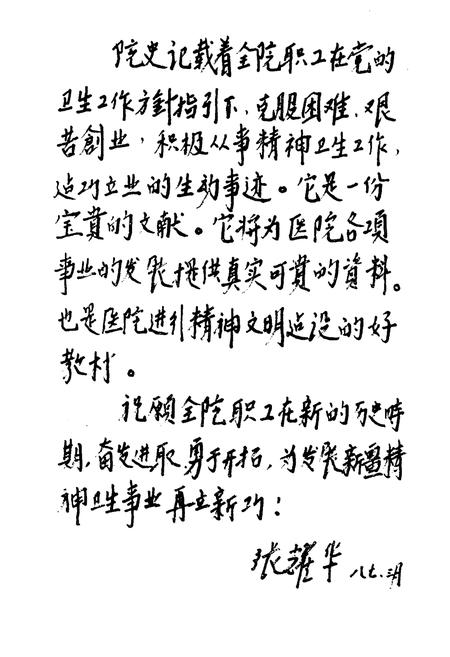 院史记载着全院职工在党的
卫生工作方針指引下，克服困难、艰
苦創业，积极从事精神卫生工作，
建功立业的生动事迹。它是一份
宝貴的文献。它将为医院各項
事业的发展提供真实可貴的資料。
也是医院进行精神文明建设的好
教材。
祝願全院职工在新的历史時
期，奋发进取，勇于开拓，为发展新疆精
神卫生事业再立新功！
张耀华 八七.三月